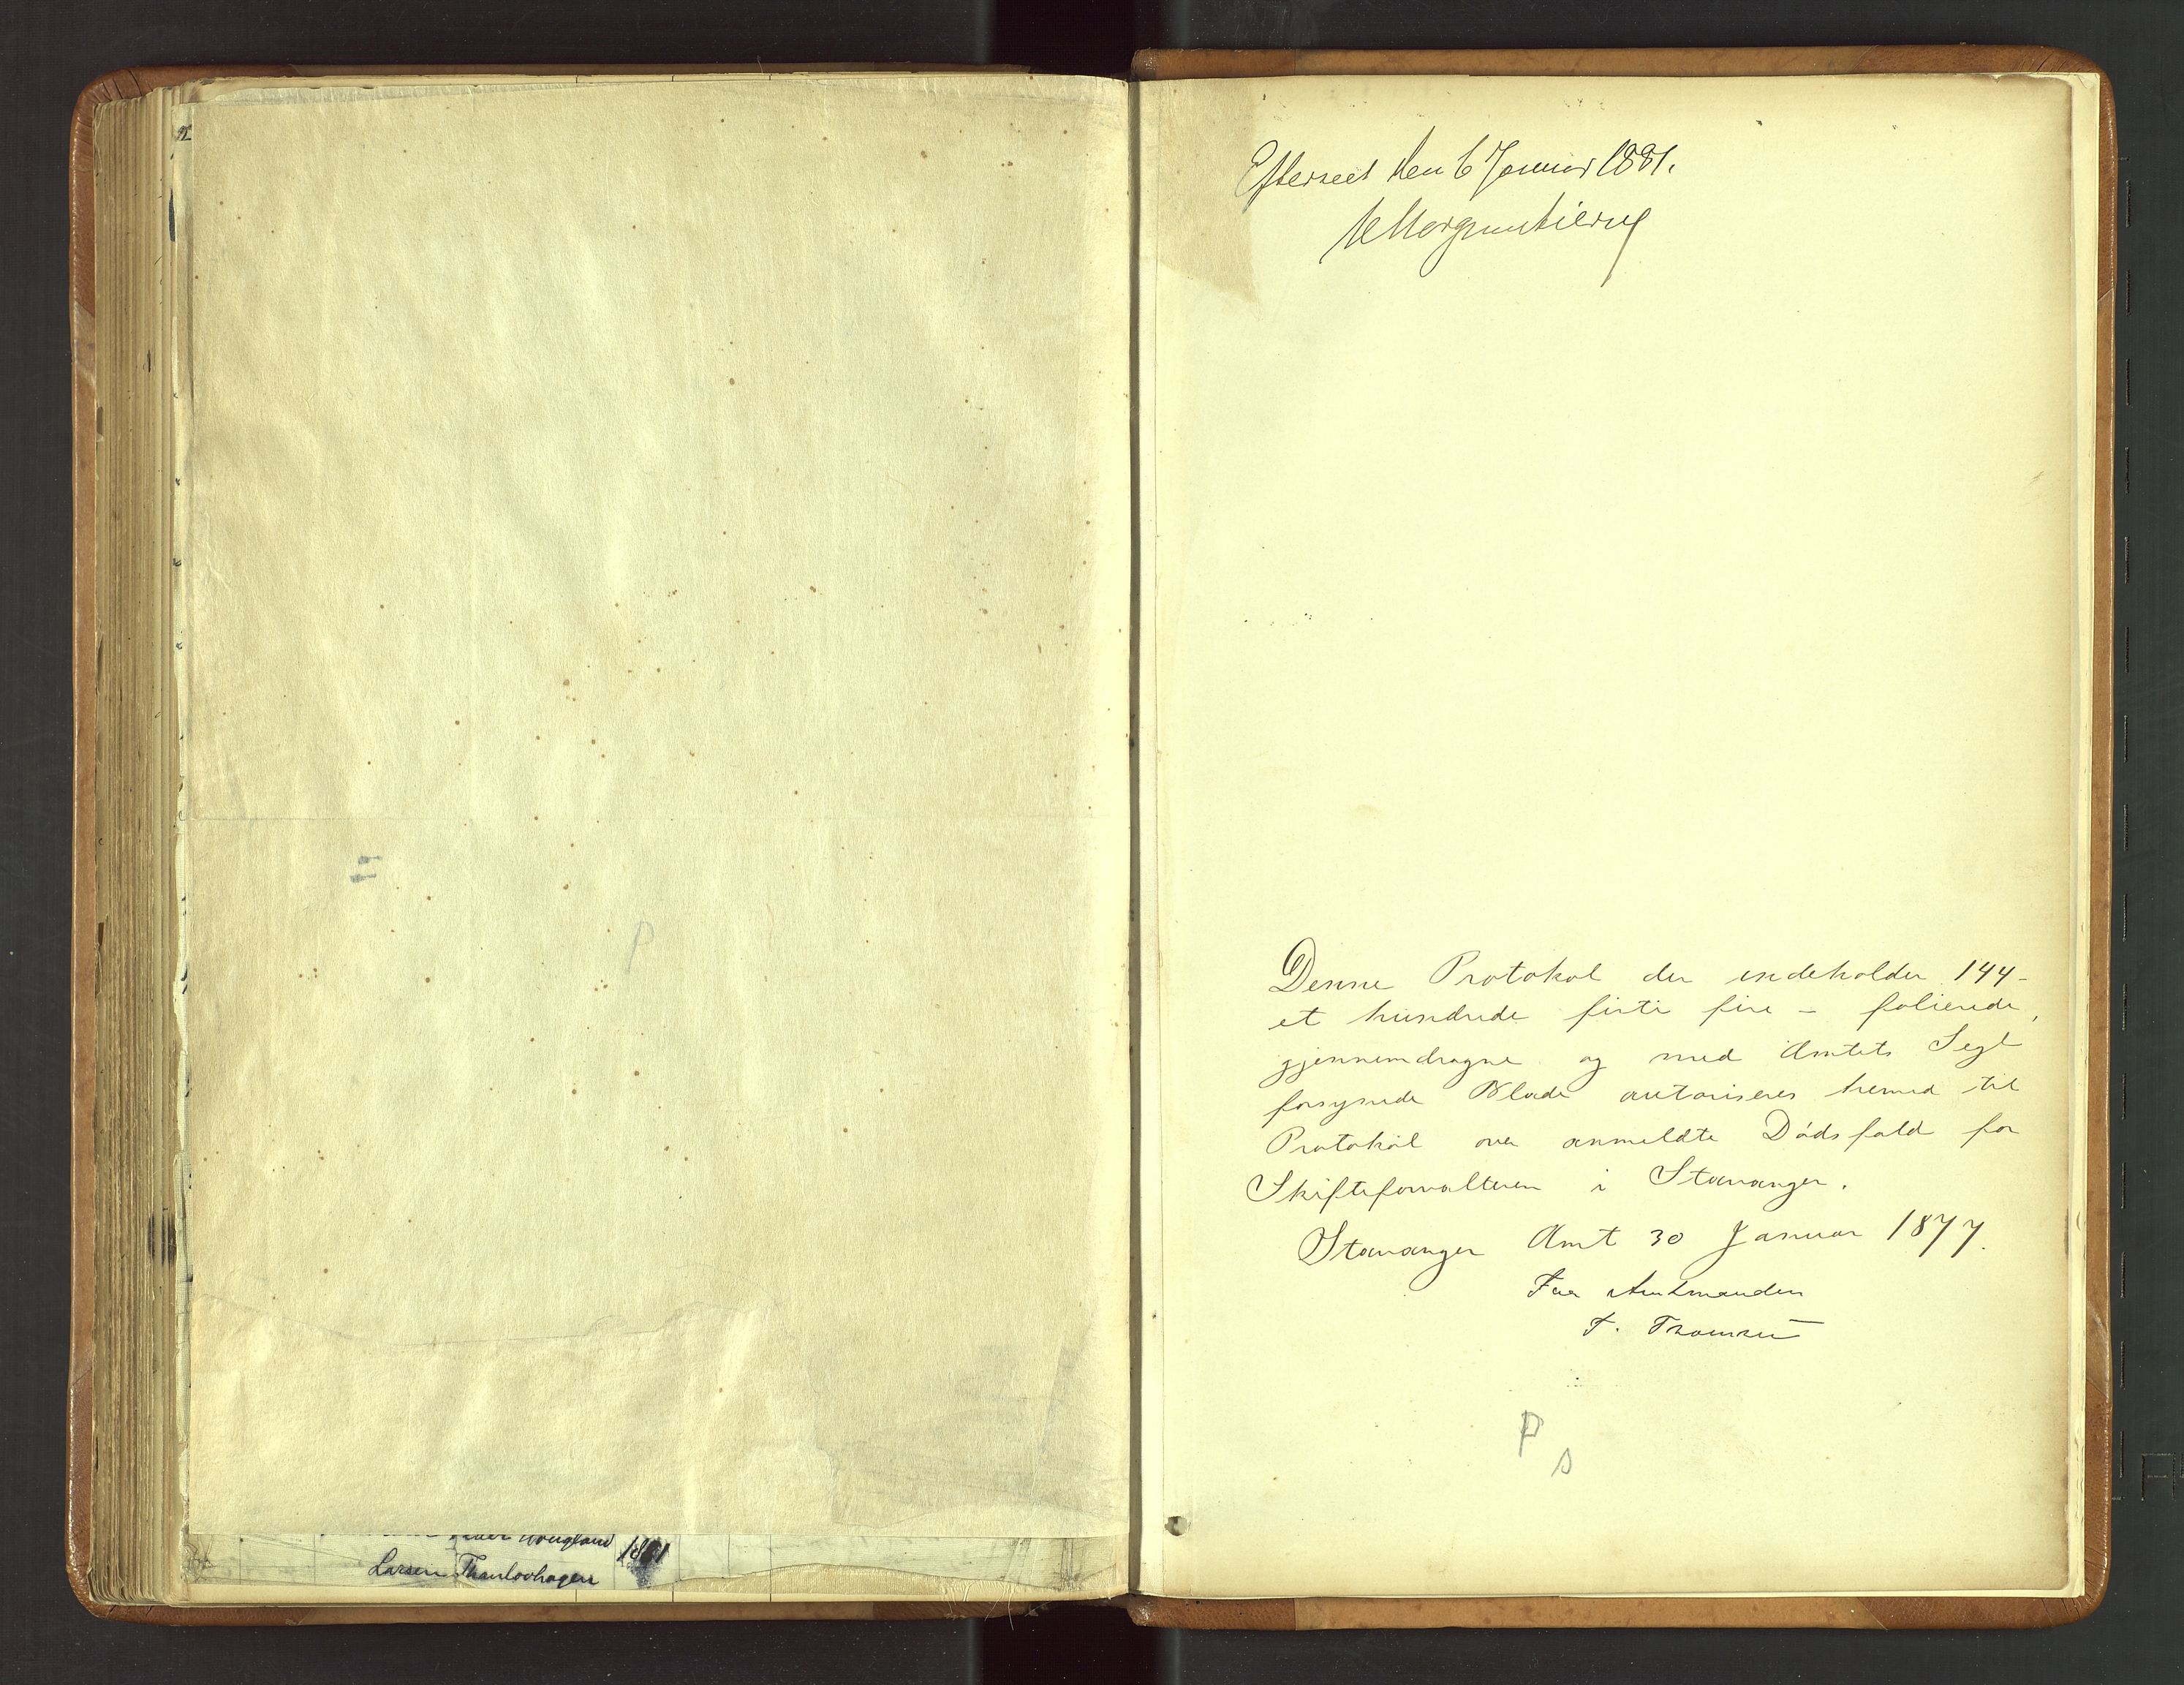 Larsen Thaulovhagen
Efterseet den 6 Januar 1881.
P
Denne Protokol der indeholder 144 -
et hundrede firti fire - folierede,
gjennemdragne og med Amtets Segl
forsynede Blade autoriseres hermed til
Protokol over anmeldte Dødsfald for
Skifteforvalteren i Stavanger.
Stavanger Amt 30 Januar 1877.
For Amtmanden
P
s